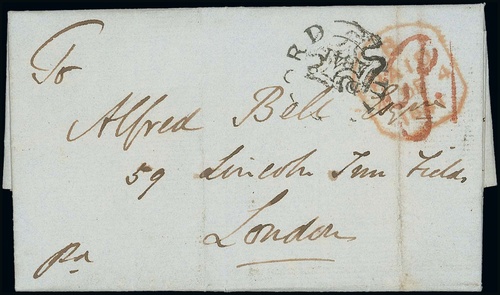 To
Alfred Bell
59 Lincoln Inn Fields
London
Pd